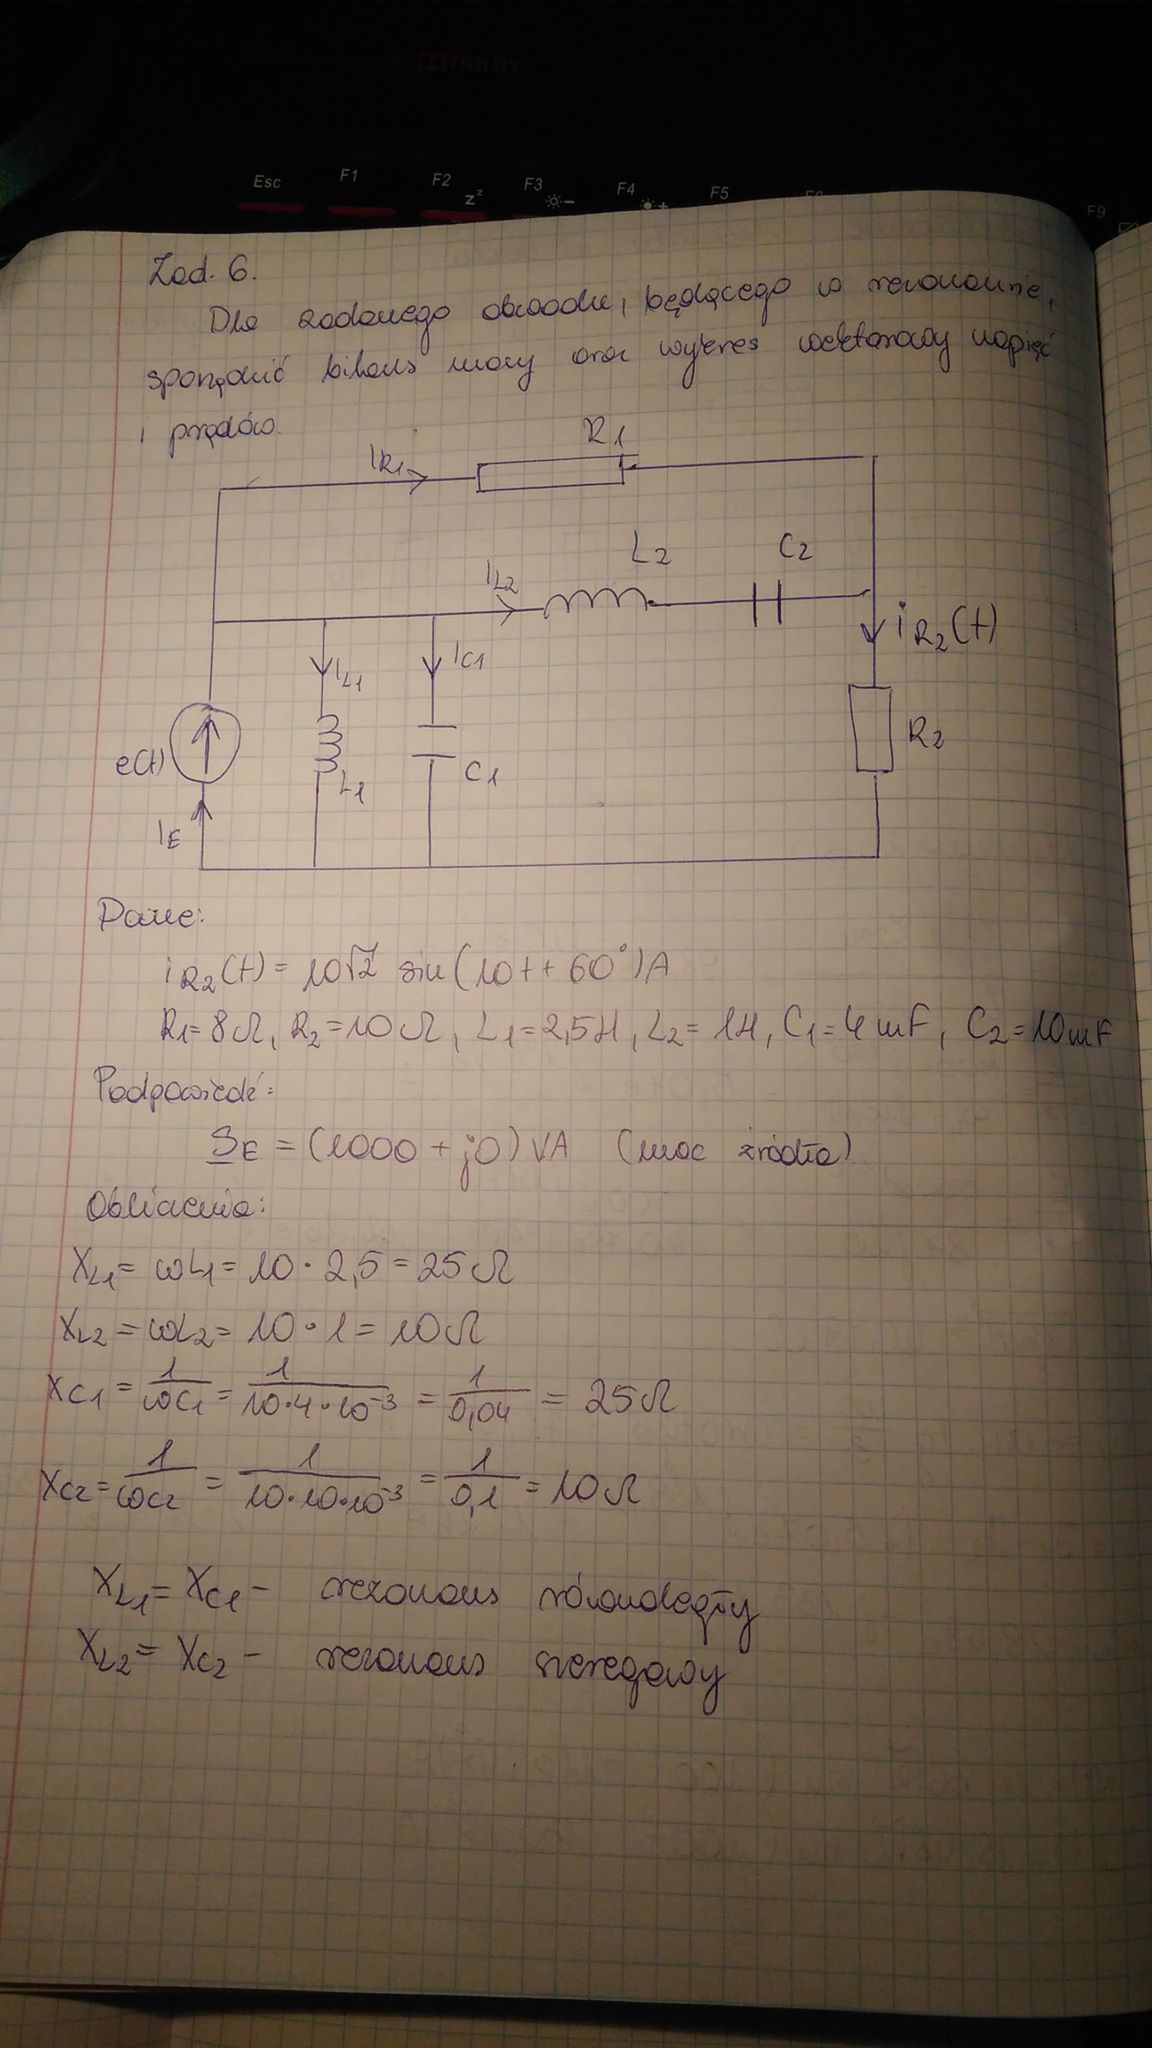 DOLBY
Esc F1 F2 F3 F4 F5 F9
Zad. 6.
Dla zadanego obwodu, będącego w rezonansie,
sporządzić bilans mocy oraz wykres wektorowy napięć
i prądów.
R1
IR1
L2
C2
IL2
iR2(t)
IC1
IL1
R2
e(t)
C1
L1
IE
Dane:
iR2(t) = 10√2 sin(10t + 60°)A
R1 = 8Ω, R2 = 10Ω, L1 = 2,5H, L2 = 1H, C1 = 4mF, C2 = 10mF
Podpowiedź:
SE = (1000 + j0) VA (moc źródła)
Obliczenia:
XL1 = ωL1 = 10 · 2,5 = 25Ω
XL2 = ωL2 = 10 · 1 = 10Ω
XC1 = 1/ωC1 = 1/10·4·10⁻³ = 1/0,04 = 25Ω
XC2 = 1/ωC2 = 1/10·10·10⁻³ = 1/0,1 = 10Ω
XL1 = XC1 - rezonans równoległy
XL2 = XC2 - rezonans szeregowy